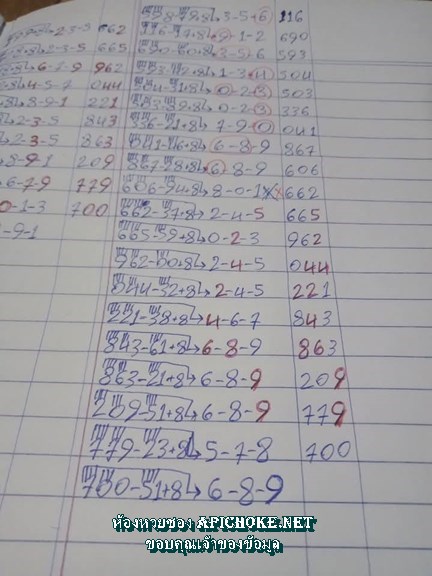 2-3-5 662 558-79+8 3-5-6 116
2-3-5 665 116-97+8 9-1-2 690
6-7-9 962 690-60+8 3-5-6 593
4-5-7 044 1-3-4 504
8-9-1 221 504-31+8 0-2-3 503
2-3-5 843 0-2-3 336
2-3-5 863 336-21+8 7-9-0 041
8-9-1 209 041-46+8 6-8-9 867
6-7-9 779 867-28+8 6-8-9 606
0-1-3 700 606-94+8 8-0-1 662
-9-1 662-37+8 2-4-5 665
665-59+8 0-2-3 962
962-00+8 2-4-5 044
044-32+8 2-4-5 221
221-38+8 4-6-7 843
843-61+8 6-8-9 863
863-21+8 6-8-9 209
209-51+8 6-8-9 779
779-23+8 5-7-8 700
700-51+8 6-8-9
ห้องหวยซอง APICHOKE.NET
ขอบคุณเจ้าของข้อมูล